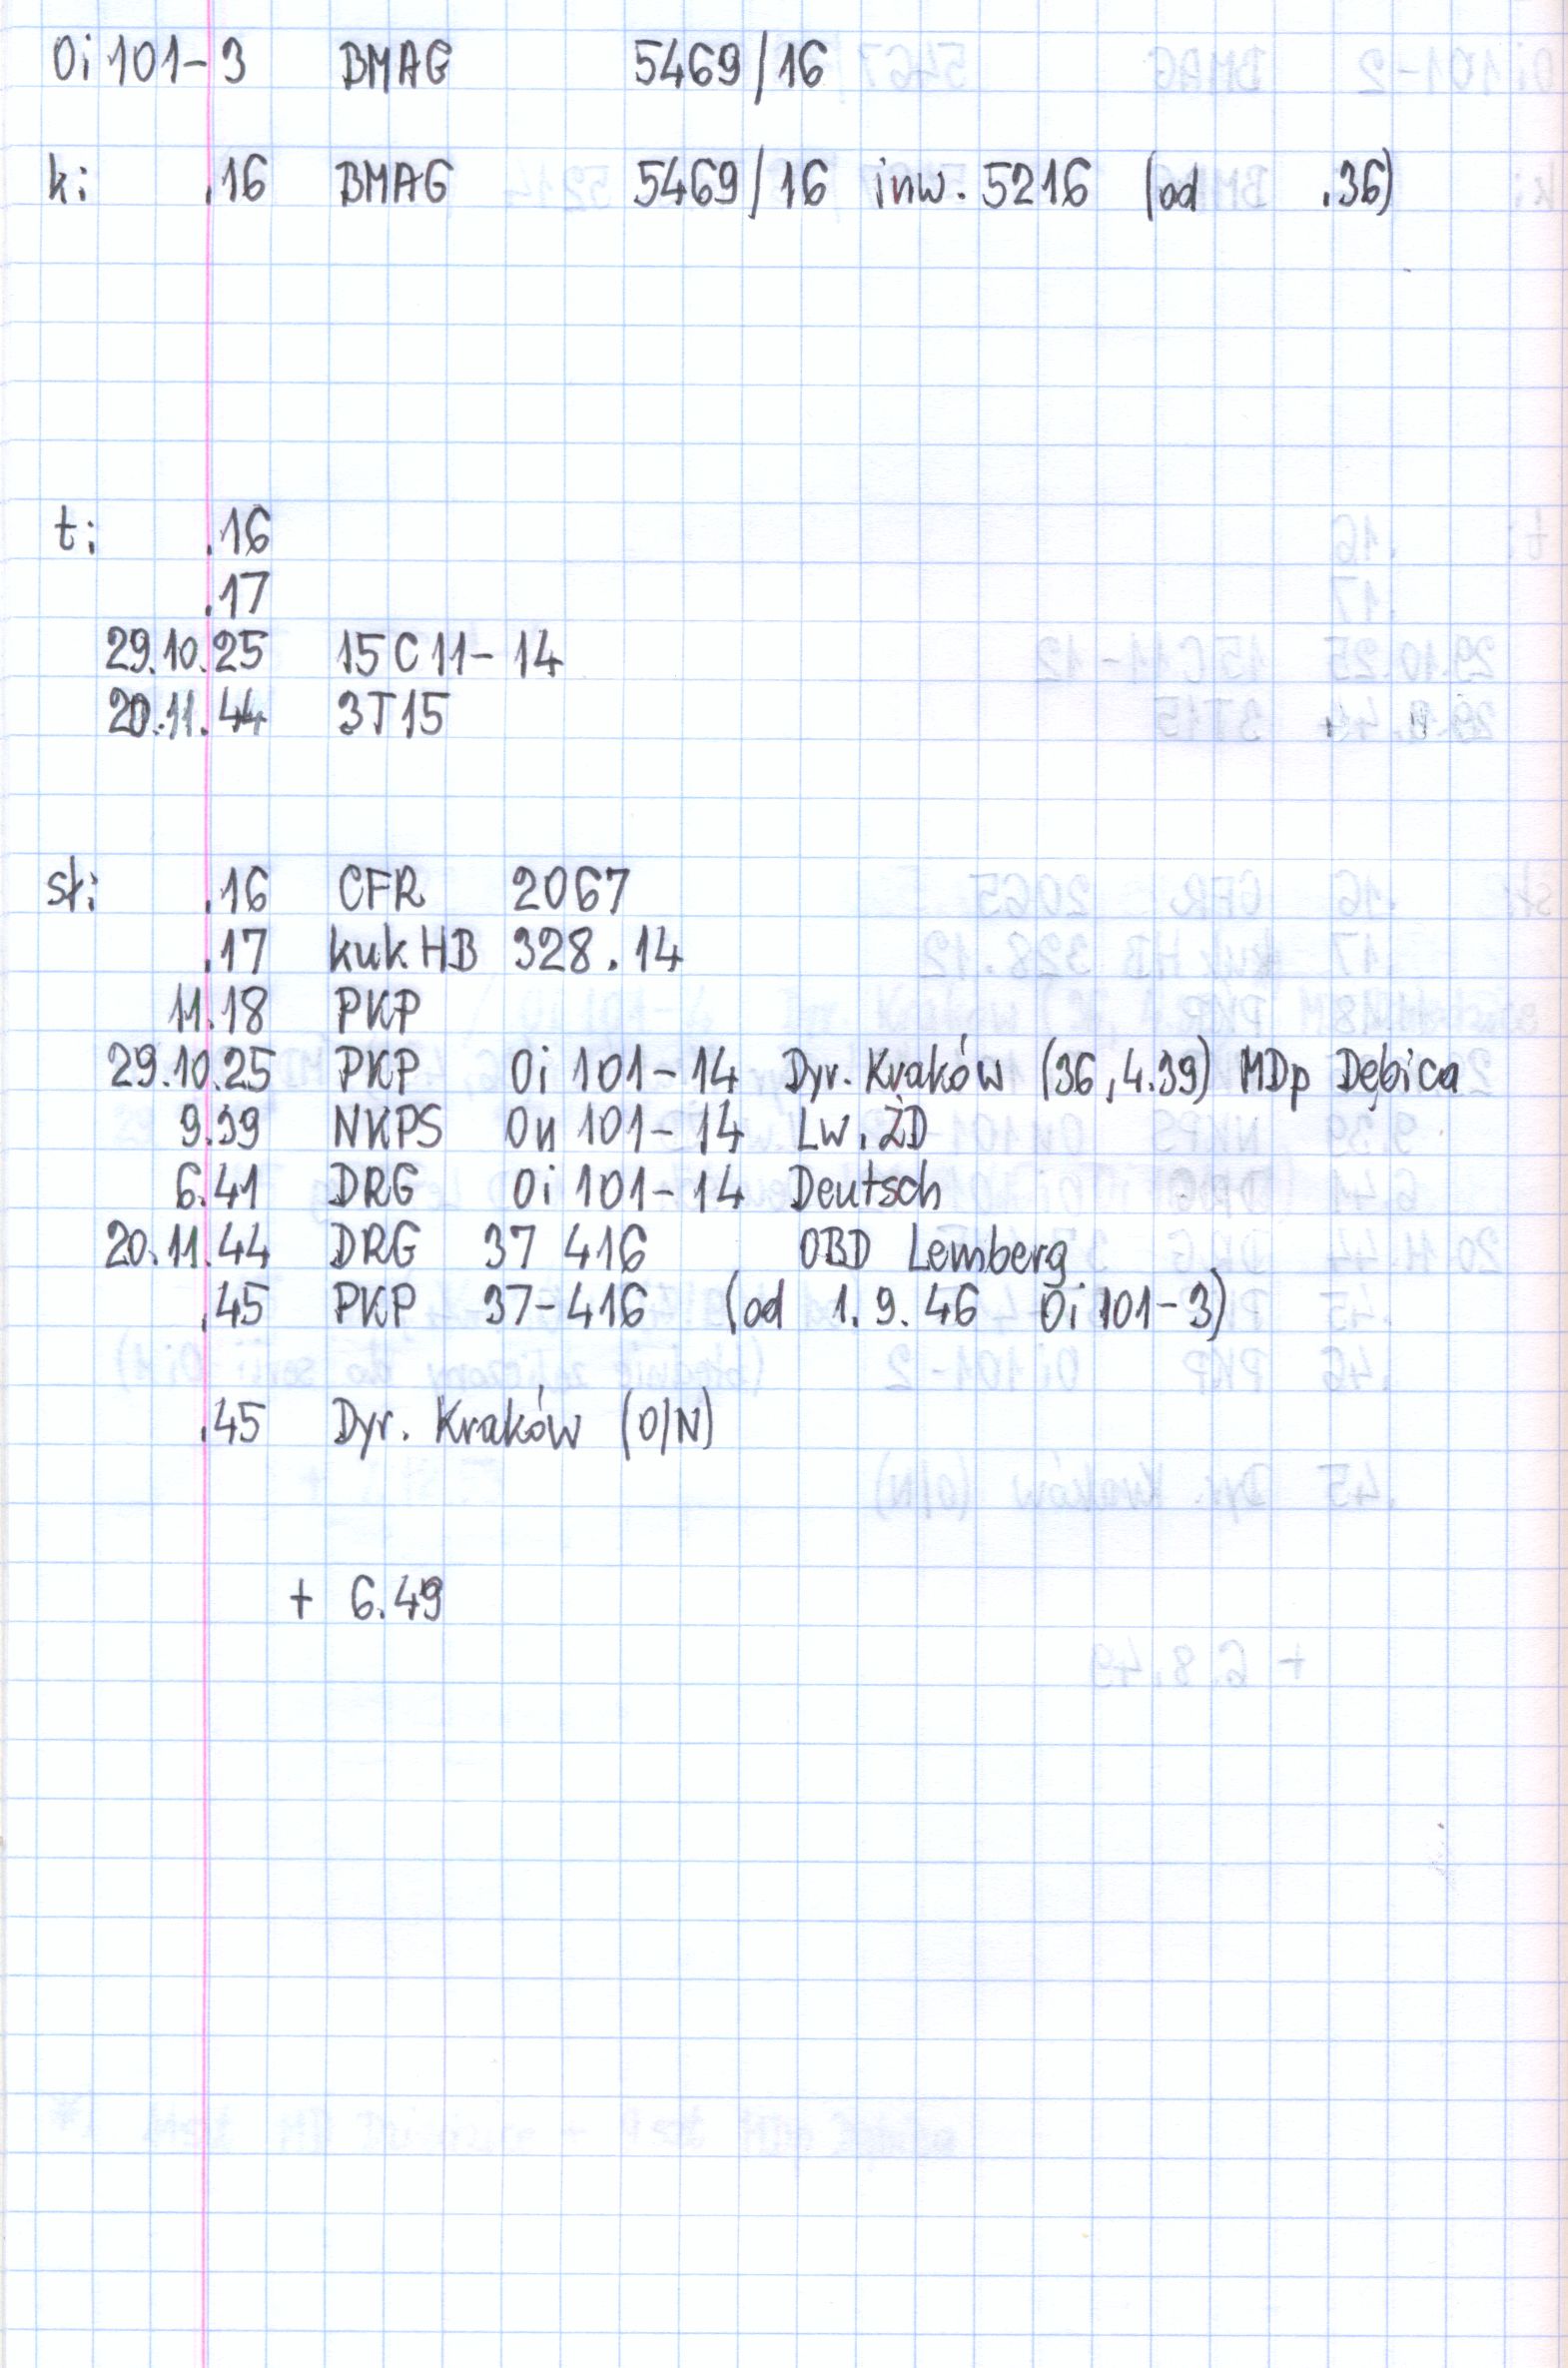 Oi 101-3 BMAG 5469/16
k: .16 BMAG 5469/16 inw. 5216 (od .36)
t: .16
.17
29.10.25 15C11-14
20.11.44 3T15
sł: .16 CFR 2067
.17 kukHB 328.14
11.18 PKP
29.10.25 PKP Oi 101-14 Dyr. Kraków (36, 4.39) MDp Dębica
9.39 NKPS Ou 101-14 Lw. ŻD
6.41 DRG Oi 101-14 Deutsch
20.11.44 DRG 37 416 OBD Lemberg
.45 PKP 37-416 (od 1.9.46 Oi 101-3)
.45 Dyr. Kraków (O/N)
+ 6.49